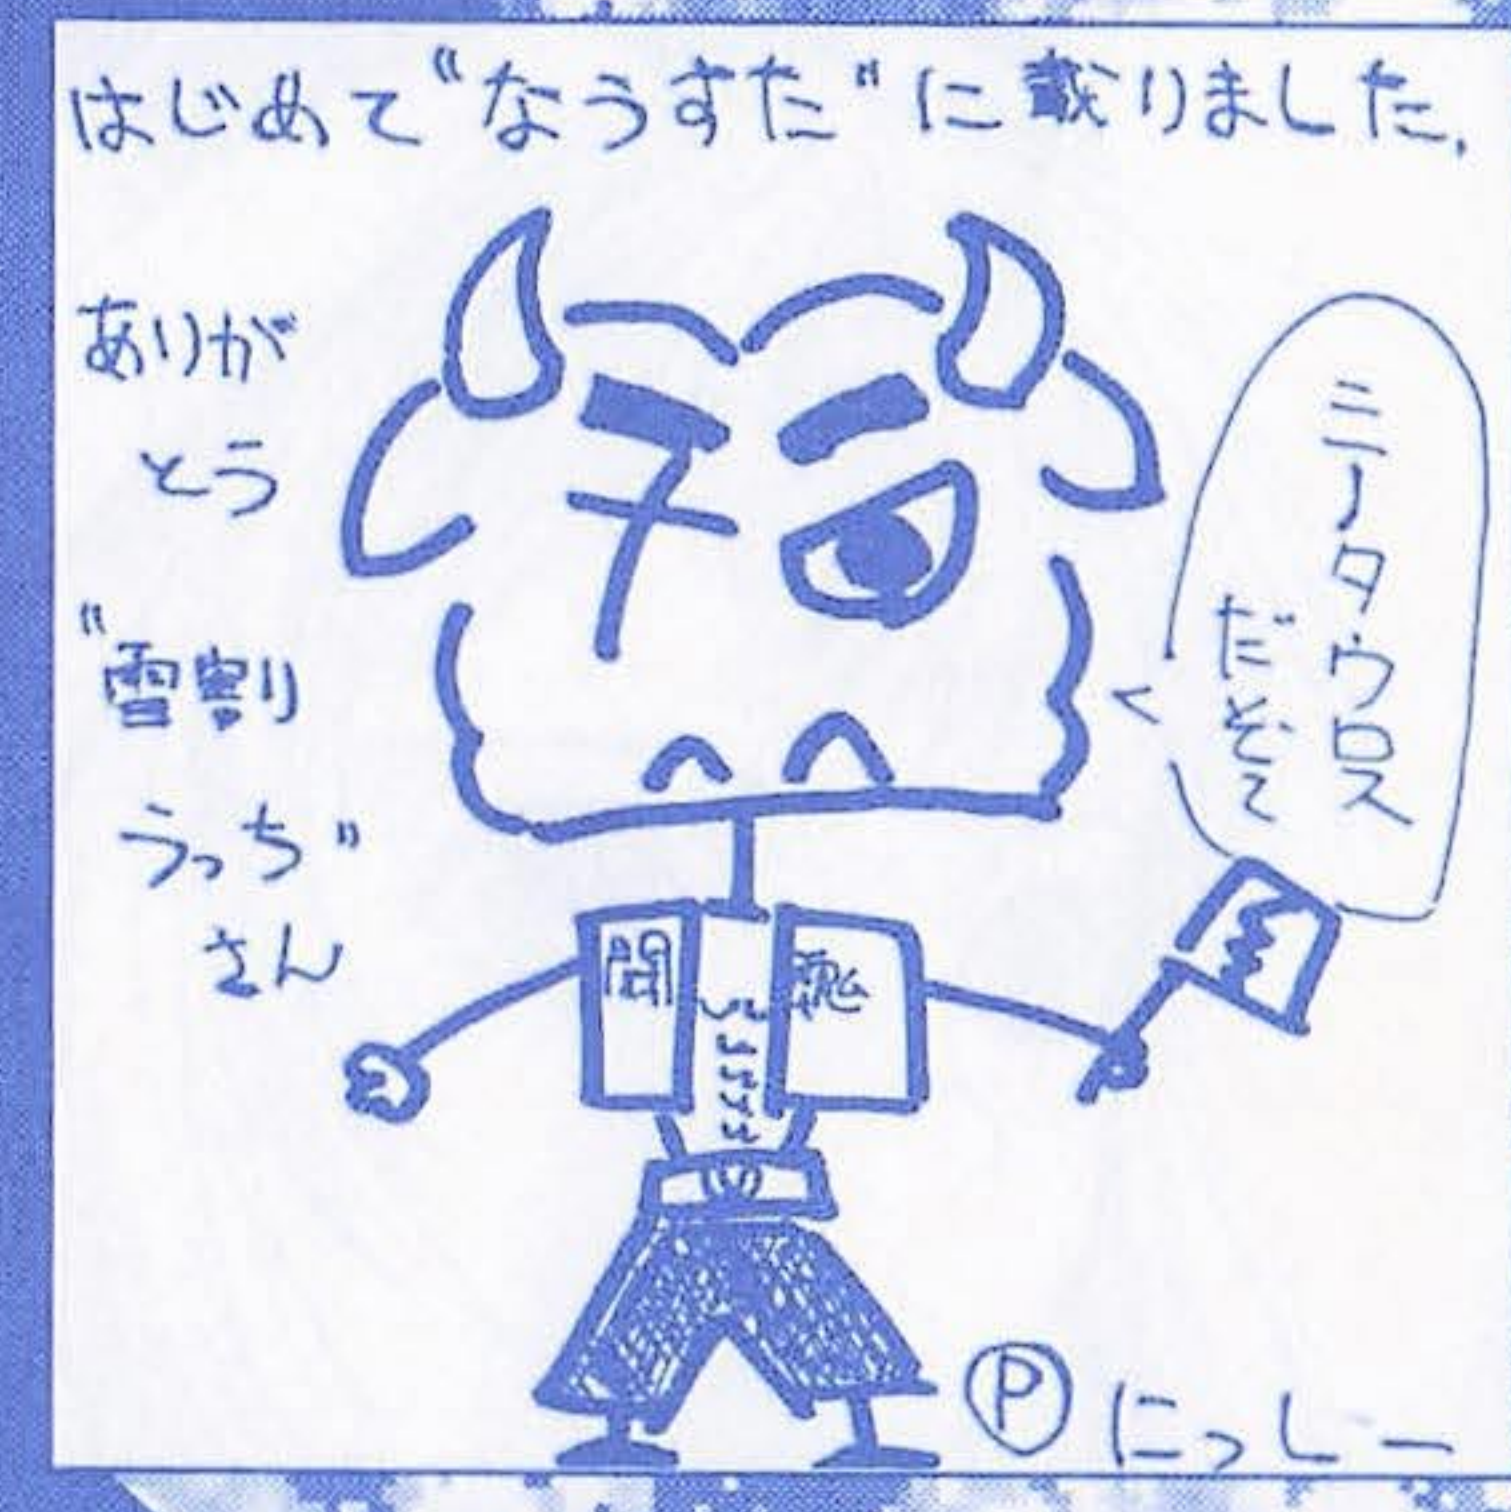 はじめて“なうすた”に載りました.
ありが
とう
“雪割
うっち”
さん
ミノタウロス
だぞて
闘
魂
Ⓟ にっしー